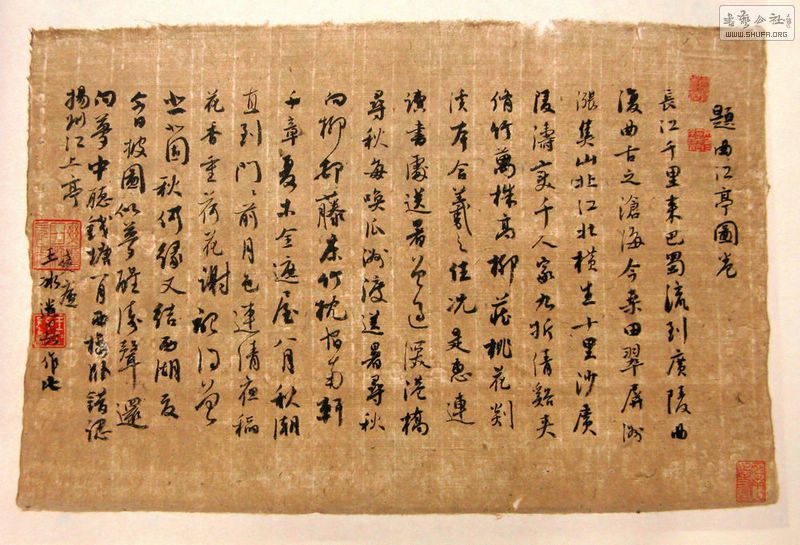 題曲江亭圖卷
長江千里來巴蜀流到廣陵曲
復曲古之滄海今桑田翠屏洲
漲焦山北江北橫生十里沙廣
陵濤變千人家九折清谿夾
脩竹萬株高柳蔽桃花剡
溪本合羲之住况是惠連
讀書處送暑曾過深港橋
尋秋每喚瓜洲渡送暑尋秋
向柳邨藤牀竹枕南軒
千章夏木全遮屋八月秋潮
直到門門前月色連清夜稻
花香重荷花謝
北固秋何緣又結西湖夏
今日披圖似夢醒濤聲還
向夢中聽錢塘一月西樓臥錯認
揚州江上亭
作此
書藝公社
WWW.SHUFA.ORG